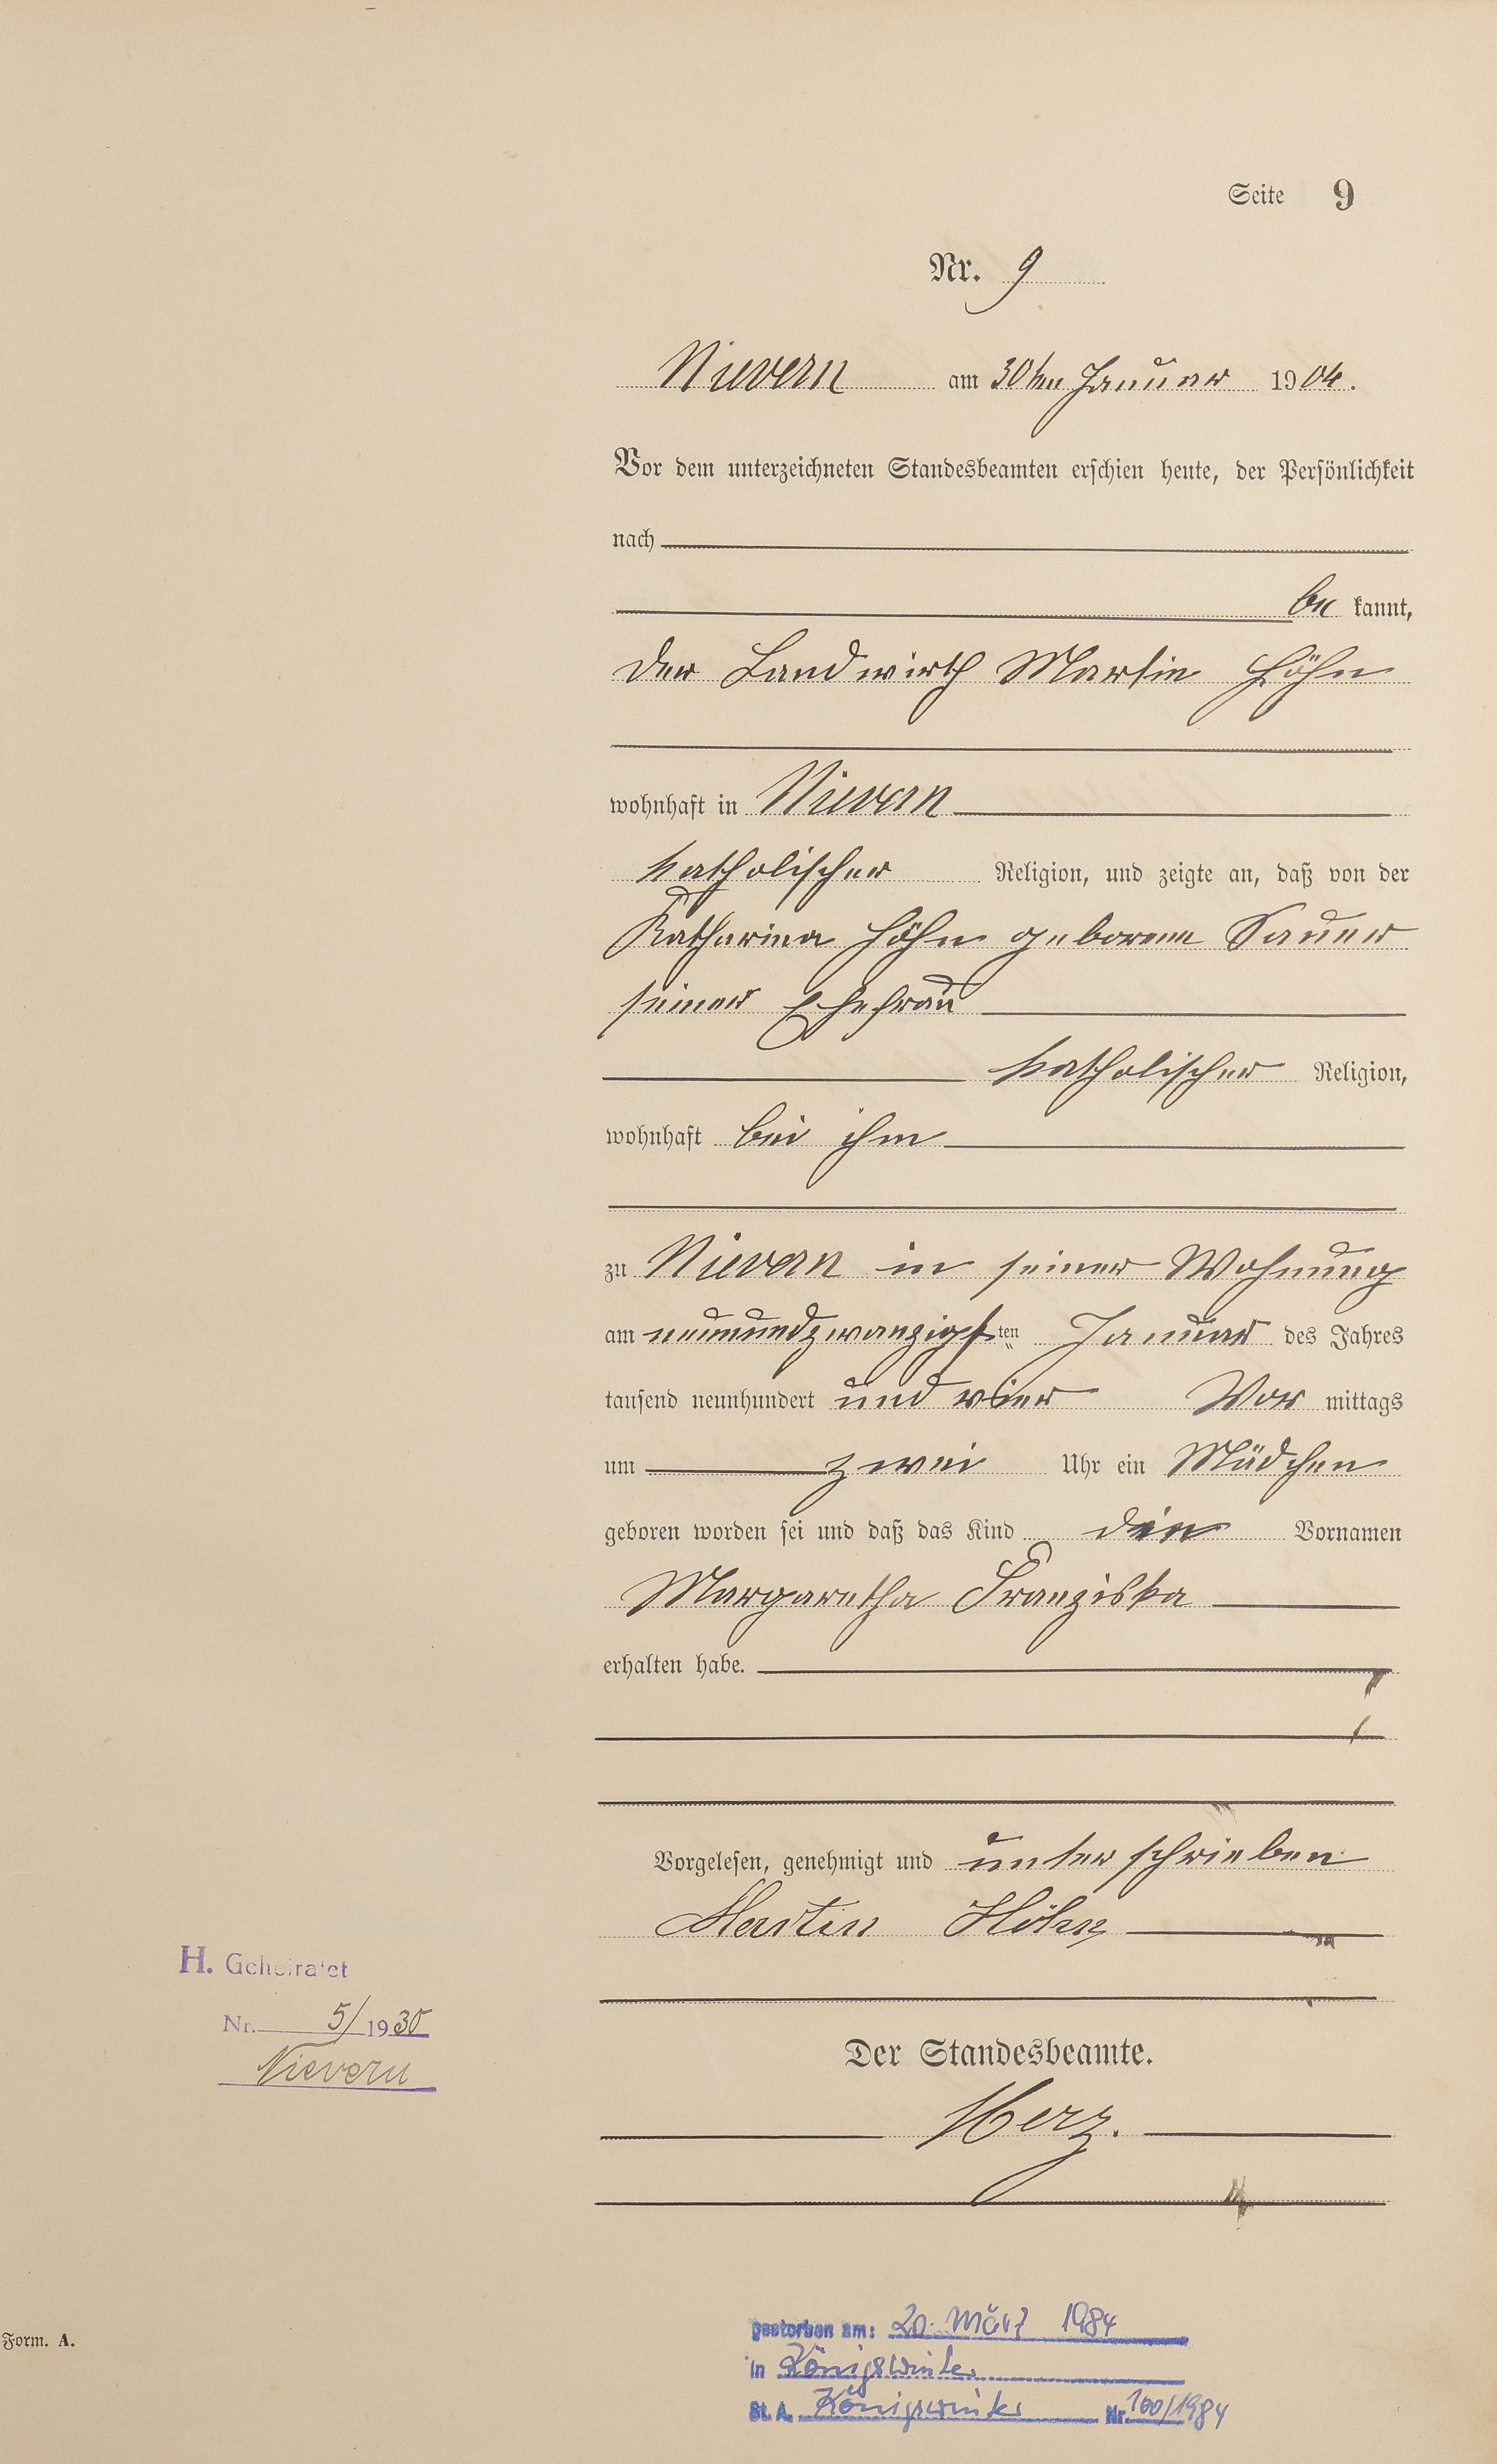 Seite 9
Nr. 9
Nievern am 30ten Januar 1904.
Vor dem unterzeichneten Standesbeamten erschien heute, der Persönlichkeit
nach
be kannt,
der Landwirth Martin Höhn
wohnhaft in Nievern
katholischer Religion, und zeigte an, daß von der
Katharina Höhn geborene Sauer
seiner Ehefrau
katholischer Religion,
wohnhaft bei ihm
zu Nievern in seiner Wohnung
am neunundzwanzigsten Januar des Jahres
tausend neunhundert und vier Vor mittags
um zwei Uhr ein Mädchen
geboren worden sei und daß das Kind den Vornamen
Margaretha Franziska
erhalten habe.
Vorgelesen, genehmigt und unterschrieben
Martin Höhn
H. Geheiratet
Nr. 5/1930
Nievern
Der Standesbeamte.
Herz.
Form. A.
gestorben am: 20. März 1984
in Königswinter
St. A. Königswinter Nr. 100/1984